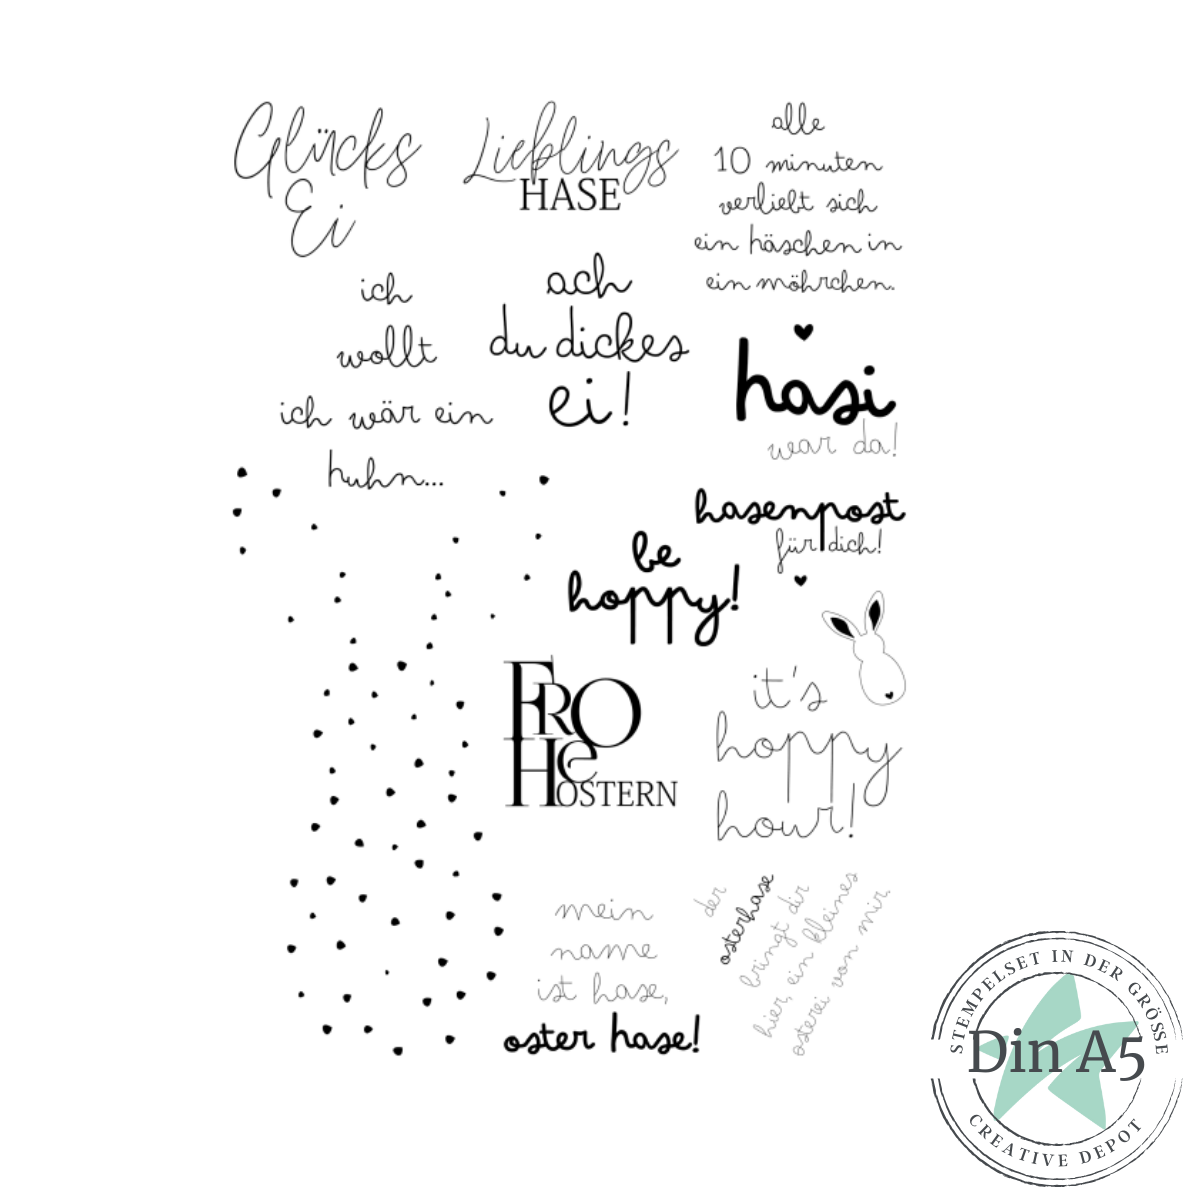 Glücks
Ei
Lieblings
HASE
alle
10 minuten
verliebt sich
ein häschen in
ein möhrchen.
ich
wollt
ich wär ein
huhn...
ach
du dickes
ei!
hasi
war da!
hasenpost
für dich!
be
hoppy!
FROHE
OSTERN
it's
hoppy
hour!
mein
name
ist hase,
oster hase!
der
osterhase
bringt dir
hier, ein kleines
osterei von mir.
STEMPELSET IN DER GRÖSSE
Din A5
CREATIVE DEPOT